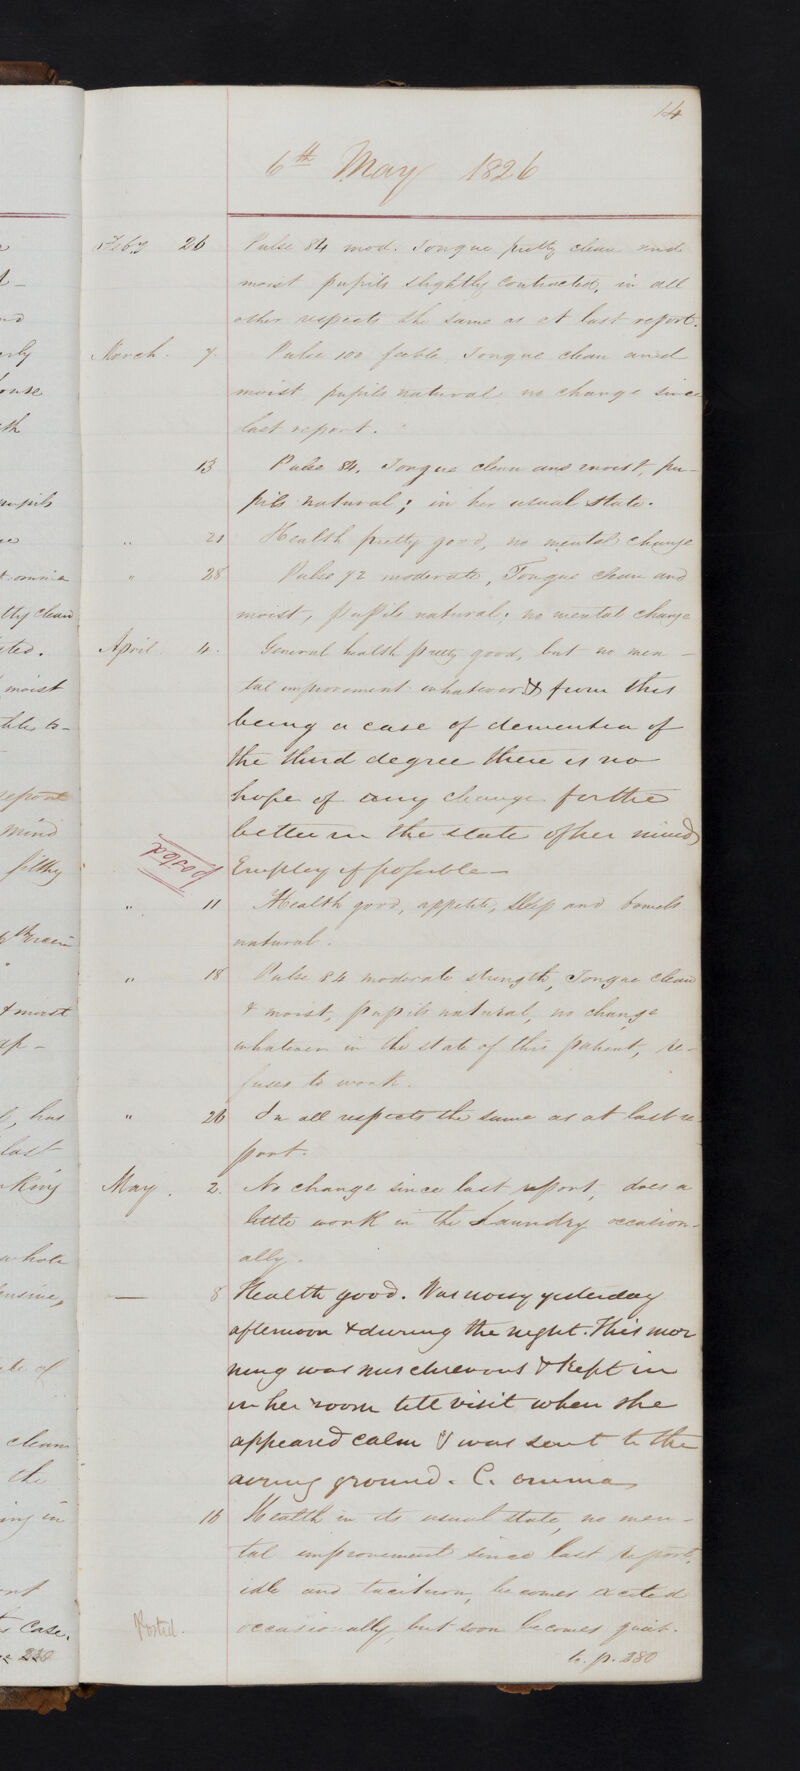 14
6th May 1826
Feby 26 Pulse 84 mod. Tongue pretty clean and
moist pupils slightly contracted, in all
other respects the same as at last report.
March 7. Pulse 100 feeble, Tongue clean and
moist, pupils natural, no change since
last report.
13 Pulse 84. Tongue clean and moist, pu-
pils natural; in her usual state.
" 21 Health pretty good, no mental change
" 28 Pulse 72 moderate, Tongue clean and
moist, pupils natural, no mental change
April 4. General health pretty good, but no men-
tal improvement whatever & from this
being a case of dementia of
the third degree there is no
hope of any change for the
better in the state of her mind
Employ if possible—
Posted
" 11 Health good, appetite, sleep and bowels
natural.
" 18 Pulse 84 moderate strength, Tongue clean
& moist, pupils natural, no change
whatever in the state of this patient, re-
fuses to work.
" 26 In all respects the same as at last re-
port.
May. 2. No change since last report, does a
little work in the Laundry occasion-
ally.
— 8 Health good. Was noisy yesterday
afternoon & during the night. This mor
ning was mischievous & kept in
in her room till visit when she
appeared calm & was sent to the
airing ground. C. omnia
16 Health in its usual state, no men-
tal improvement since last report,
idle and taciturn, becomes excited
occasionally, but soon becomes quiet.
Posted.
to. p. 280
pupils
tty clean
moist
report
mind
filthy
& moist
, has
last
king
whole
clean
the
ing in
Case.